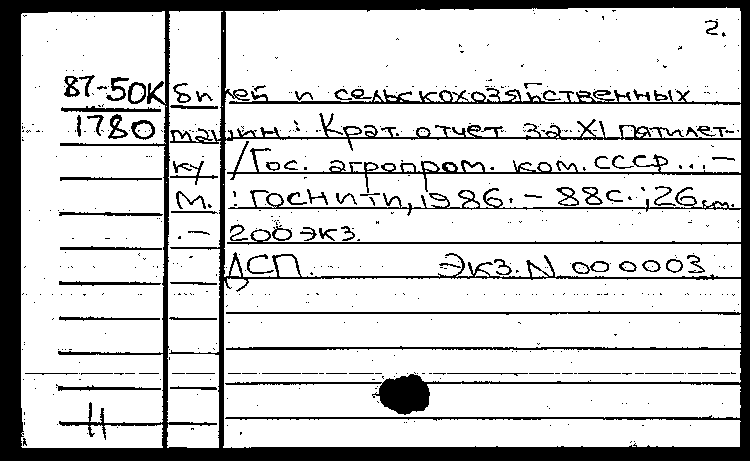 2.
87-50К билей и сельскохозяйственных
1780 машин: Крат. отчет за XI пятилет-
ку /Гос. агропром. ком. СССР...-
М.: ГОСНИТИ, 1986.- 88с.; 26см.
.- 200экз.
ДСП. Экз. N 000003